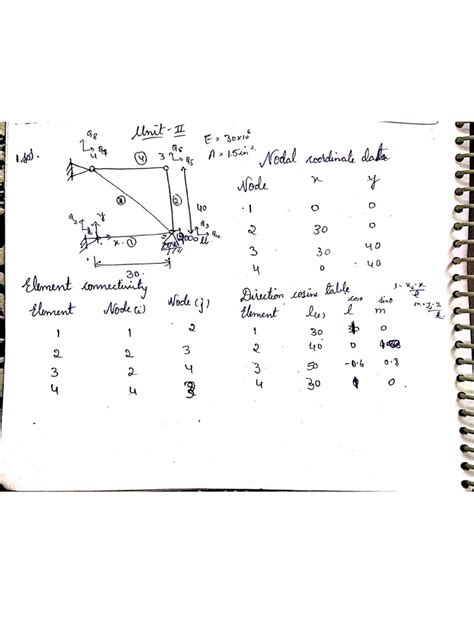 Unit - II
1. Sol.
E = 30x10^6
A = 1.5 in^2
Q8
Q7
4
4
3
Q6
Q5
3
2
40
Q2
y
x
1
Q3
Q4
30
Nodal coordinate data
Node x y
1 0 0
2 30 0
3 30 40
4 0 40
Element connectivity
Element Node(i) Node(j)
1 1 2
2 2 3
3 2 4
4 4 3
Direction cosine table
cosθ sinθ
Element l(e) l m
1 30 0
2 40 0
3 50 -0.6 0.8
4 30 0